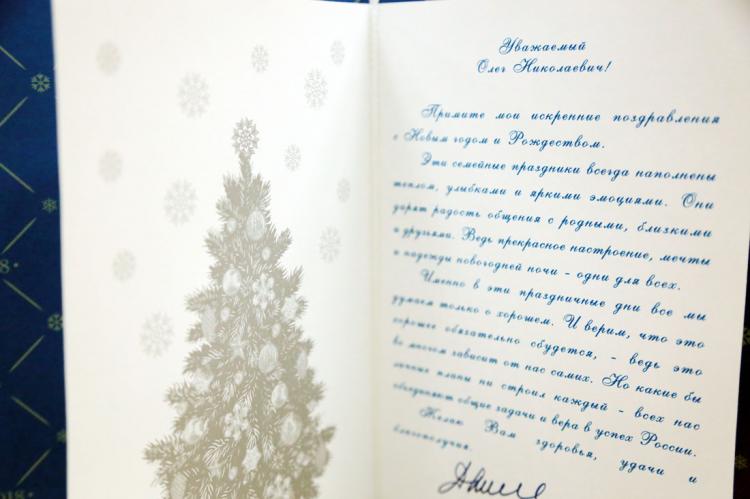 Уважаемый
Олег Николаевич!
Примите мои искренние поздравления
с Новым годом и Рождеством.
Эти семейные праздники всегда наполнены
теплом, улыбками и яркими эмоциями. Они
дарят радость общения с родными, близкими
и друзьями. Ведь прекрасное настроение, мечты
и надежды новогодней ночи - одни для всех.
Именно в эти праздничные дни все мы
думаем только о хорошем. И верим, что это
хорошее обязательно сбудется, - ведь это
во многом зависит от нас самих. Но какие бы
личные планы ни строил каждый - всех нас
объединяют общие задачи и вера в успех России.
Желаю Вам здоровья, удачи и
благополучия.